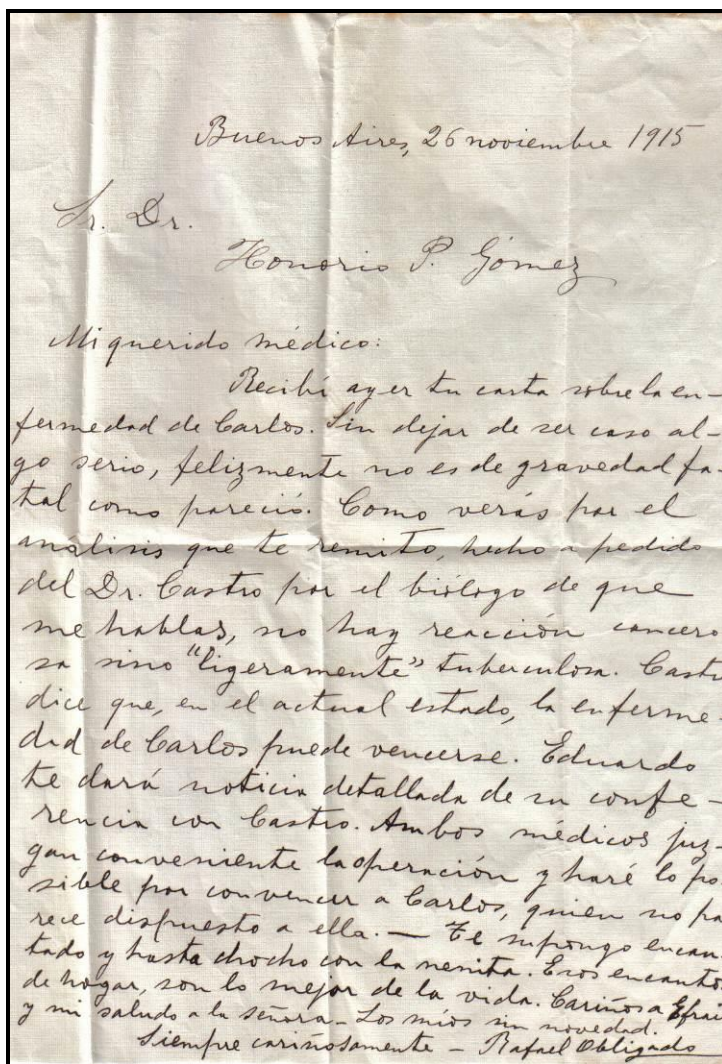 Buenos Aires, 26 noviembre 1915
Sr. Dr.
Honorio P. Gómez
Mi querido médico:
Recibí ayer tu carta sobre la en-
fermedad de Carlos. Sin dejar de ser caso al-
go serio, felizmente no es de gravedad fa-
tal como pareció. Como verás por el
análisis que te remito, hecho a pedido
del Dr. Castro por el biólogo de que
me hablas, no hay reacción cancero
sa sino "ligeramente" tuberculosa. Castro
dice que, en el actual estado, la enferme-
dad de Carlos puede vencerse. Eduardo
te dará noticia detallada de su confe-
rencia con Castro. Ambos médicos juz-
gan conveniente la operación y haré lo po
sible por convencer a Carlos, quien no pa
rece dispuesto a ella. — Te supongo encan
tado y hasta chocho con la nenita. Esos encantos
de hogar, son lo mejor de la vida. Cariños a Efraí
y mi saludo a la señora - Los míos sin novedad.
Siempre cariñosamente - Rafael Obligado